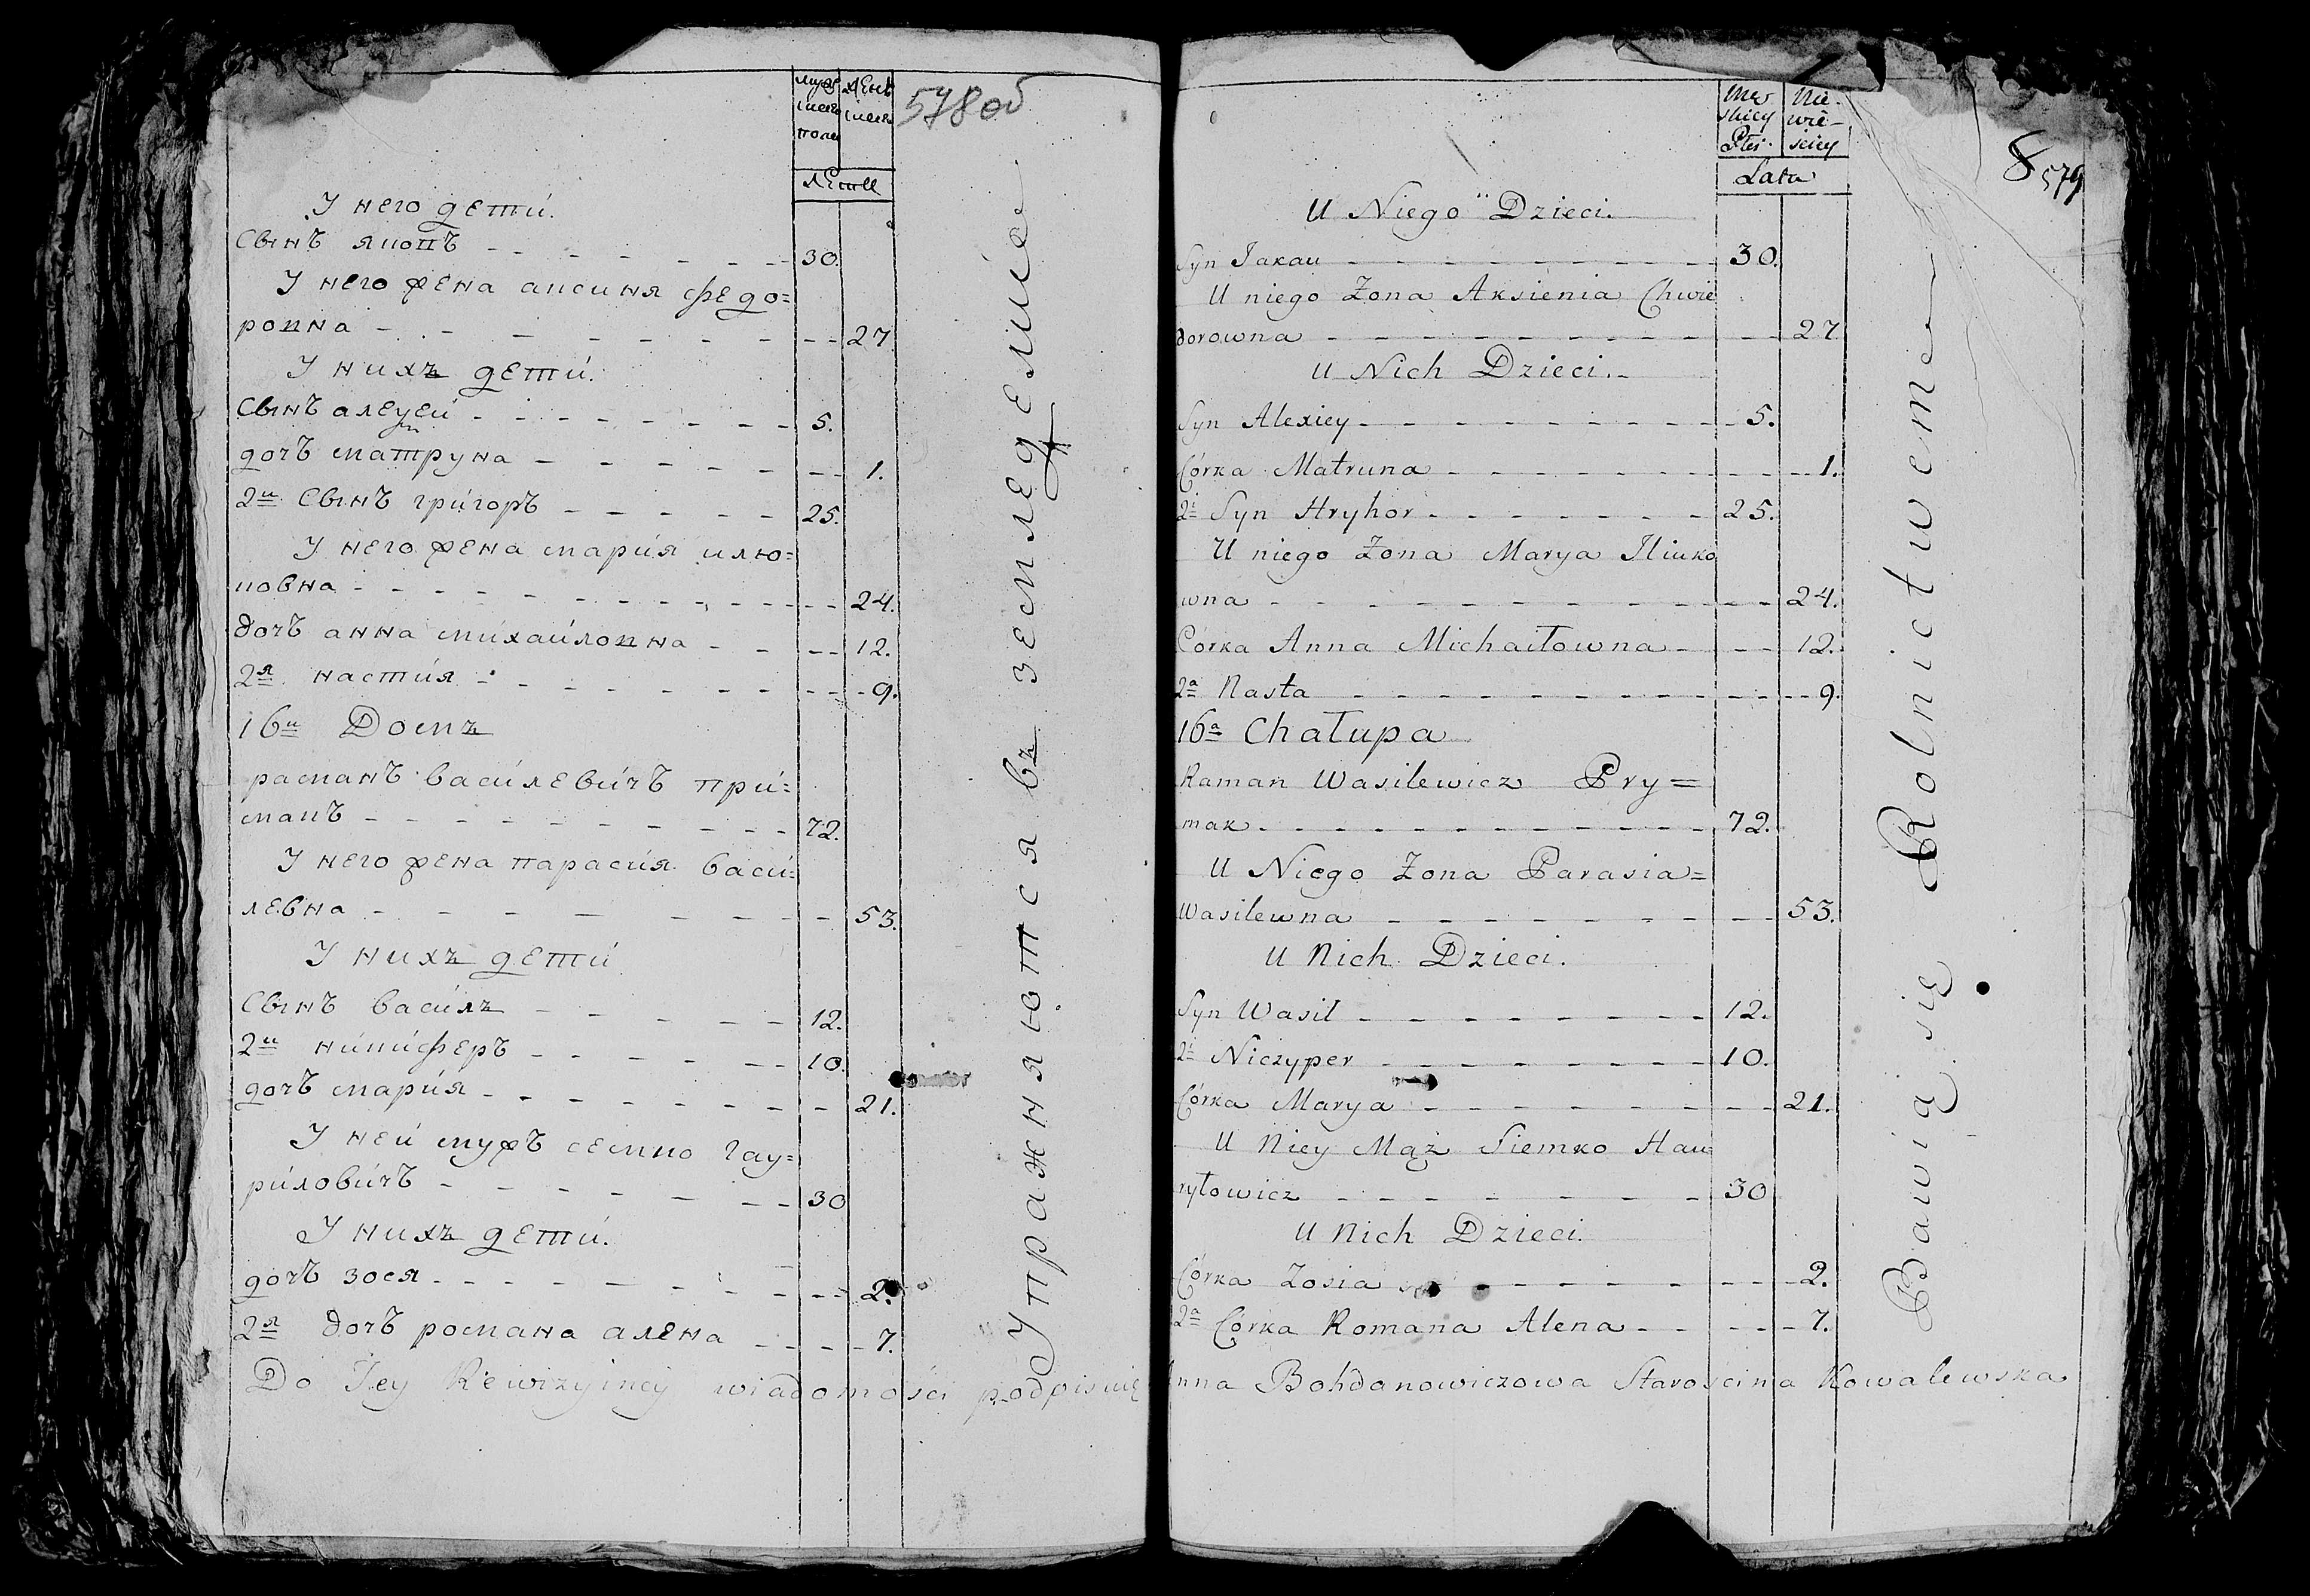 578об
мужеска полу
женска
лета
У него дети.
Сынъ якопъ 30.
У него жена аксиня федо=
ровна 27
У нихъ дети.
Сынъ алецеи 5.
дочъ матруна 1.
2и Сынъ григоръ 25.
У него жена мария илю=
ковна 24.
дочъ анна михаиловна 12.
2я настия 9.
16и Домъ
раманъ василевичъ при=
макъ 72.
У него жена парасия васи=
левна 53.
У нихъ дети
Сынъ василъ 12.
2и никиферъ 10.
дочъ мария 21.
У неи мужъ семко гау=
риловичъ 30
У нихъ дети.
дочъ зося 2.
2я дочъ романа алена 7.
Упражняются въ земледелие
Do Jey Rewizyiney wiadomości podpisuię
8
579
Męskiey Płci
Niewieściey
Lata
U Niego Dzieci.
Syn Jakau 30.
U niego Zona Aksienia Chwie
dorowna 27
U Nich Dzieci.
Syn Alexiey 5.
Córka Matruna 1.
2i Syn Hryhor 25.
U niego Zona Marya Iliuko
wna 24.
Córka Anna Michaiłowna 12.
2a Nasta 9.
16a Chałupa
Raman Wasilewicz Pry=
mak 72.
U Niego Zona Parasia=
Wasilewna 53.
U Nich Dzieci.
Syn Wasil 12.
2i Niczyper 10.
Córka Marya 21.
U Niey Mąż Siemko Hau
ryłowicz 30
U Nich Dzieci.
Córka Zosia 2.
2a Córka Romana Alena 7.
Bawią się Rolnictweme
Anna Bohdanowiczowa Starościna Kowalewska